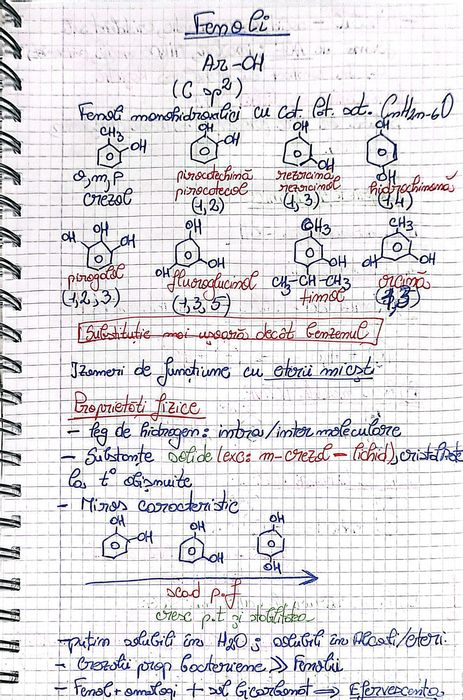 Fenoli
Ar-OH
(C sp²)
Fenoli monohidroxilici cu cat. lat. sat. CnH2n-6O
CH3 OH OH OH OH OH OH
o, m, p pirocatechină rezorcină hidrochinonă
crezol pirocatecol rezorcinol (1,4)
(1,2) (1,3)
OH OH OH OH OH OH CH3 OH CH3 OH OH
pirogalol fluoroglucinol CH3-CH-CH3 orcină
(1,2,3) (1,3,5) timol
Substituție mai ușoară decât benzenul
Izomeri de funcțiune cu eterii micști
Proprietăți fizice
- leg de hidrogen: intra/inter moleculare
- Substanțe solide (exc: m-crezol - lichid), cristalizate
la t° obișnuite
- Miros caracteristic
OH OH OH OH OH OH
scad p.f
cresc p.t și stabilitatea
- puțin solubili în H2O; solubili în Alcooli/eteri.
- Crezolii prop bacteriene >> Fenolii
- Fenol + omologi + sol bicarbonat → Efervescența